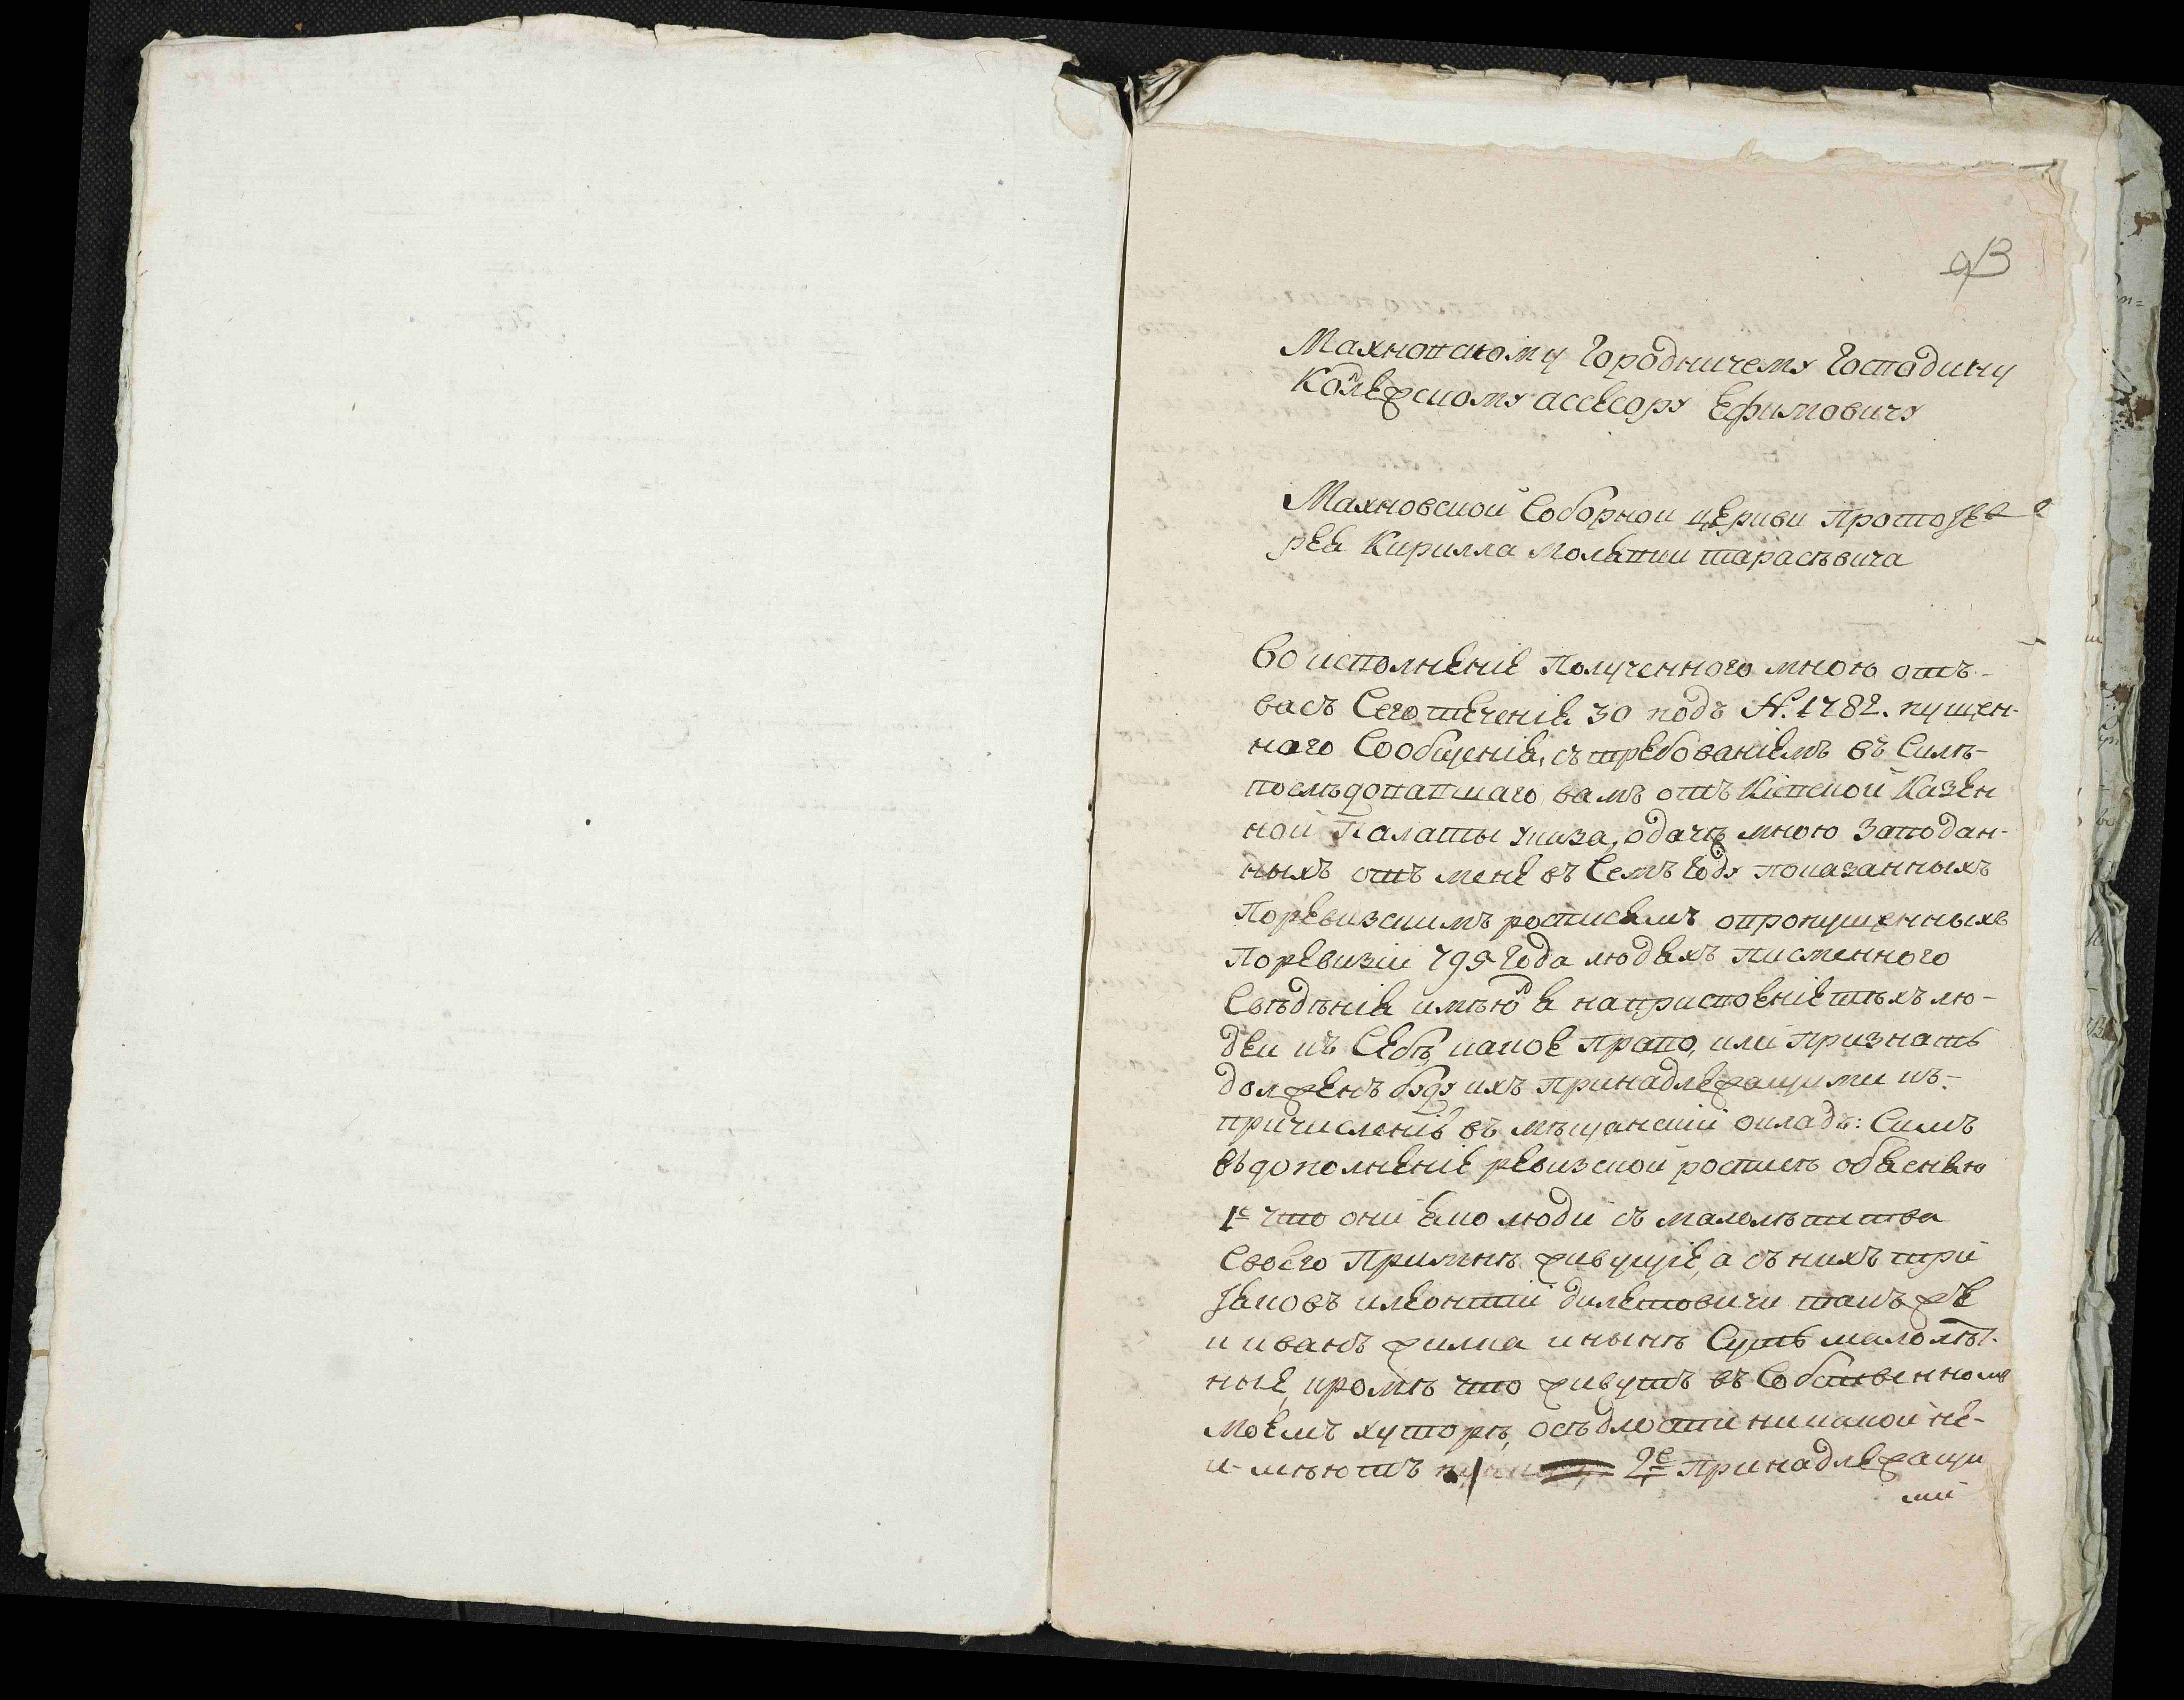 Махновскому Городничему Господину
Колежскому ассесору Ефимовичу
Махновской Соборной церкви Протоіе
рея Кирилла Тарасѣвича
Во исполненіе Полученного мною отъ-
васъ Сего теченія 30 подъ №. 1782. пущен-
ного Сообщенія, съ требованіемъ въ Силѣ-
последовавшаго вамъ отъ Кіевской Казен
ной Палаты указа, одачѣ мною Заподан-
ныхъ отъ мене въ Семъ Году показанныхъ
Поревизскимъ росписямъ опропущенныхъ
Поревизіи 795 Года людяхъ писменного
Свѣдѣнія имѣю л я наприсвоеніе тѣхъ лю-
дей къ Себѣ какое право, или признать
долженъ буду ихъ принадлежащими къ-
причисленію въ мѣщанскій окладъ: Симъ
въ дополненіе ревизской росписѣ обясняю
1е что оні яко люди съ малолѣтства
Своего Приминѣ живущіе, а съ нихъ три
Яковъ илеонтій такъ же
и иванъ инынѣ Суть малолѣт-
ные, кромѣ что живутъ въ Собственномъ
Моемъ хуторѣ, осѣдлости никакой не-
имѣютъ 2е Принадлежащи
ми